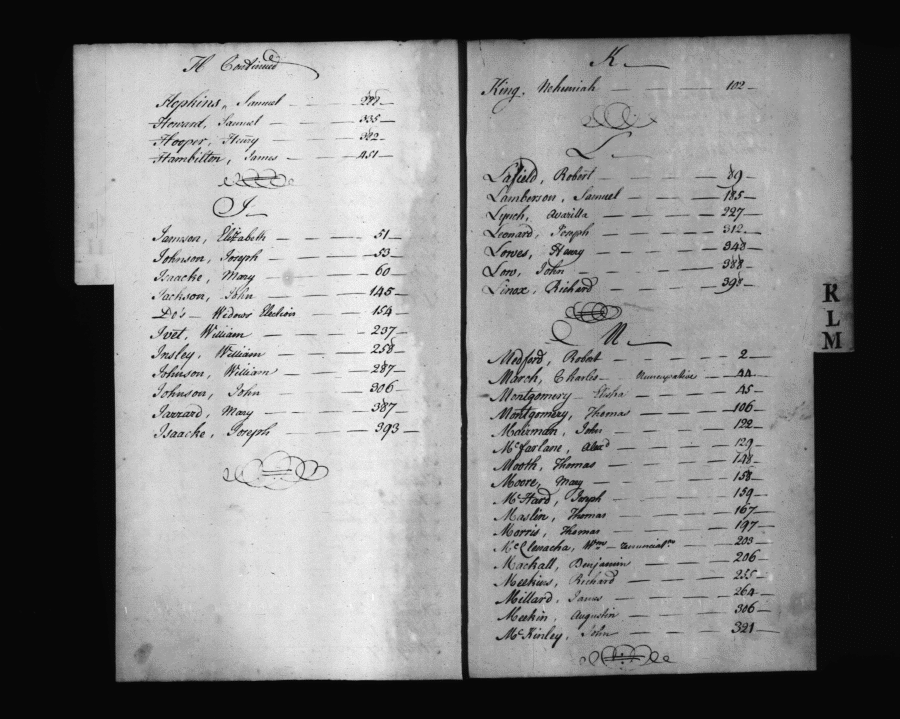 H Continued
Hopkins, Samuel 292
Howard, Samuel 335
Hooper, Henry 382
Hambilton, James 451
J
Jamson, Elizabeth 51
Johnson, Joseph 53
Isaacke, Mary 60
Jackson, John 145
Do's Widows Election 154
Ivet, William 237
Insley, William 258
Johnson, William 287
Johnson, John 306
Jazzard, Mary 387
Isaacke, Joseph 393
K
King, Nehemiah 102
L
Lafield, Robert 89
Lamberson, Samuel 185
Lynch, Avarilla 227
Leonard, Joseph 312
Lowes, Henry 348
Low, John 388
Linox, Richard 398
M
Medford, Robert 2
March, Charles Nuncupative 44
Montgomery Elisha 45
Montgomery, Thomas 106
Mairman, John 122
McFarlane, Alexd 129
Mooth, Thomas 148
Moore, Mary 158
McHard, Joseph 159
Maslin, Thomas 167
Morris, Thomas 197
McClenacha, Wm renunciatn 203
Mackall, Benjamin 206
Meekins, Richard 255
Millard, James 264
Meekin, Augustin 306
McKinley, John 321
K
L
M